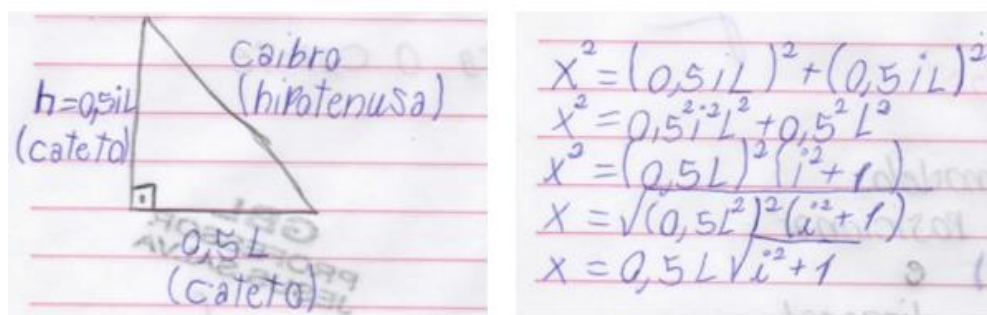 caibro
(hipotenusa)
h=0,5iL
(cateto)
0,5L
(cateto)
x²=(0,5iL)²+(0,5iL)²
x²=0,5²i²L²+0,5²L²
x²=(0,5L)²(i²+1)
x=√(0,5L²)²(i²+1)
x=0,5L√i²+1